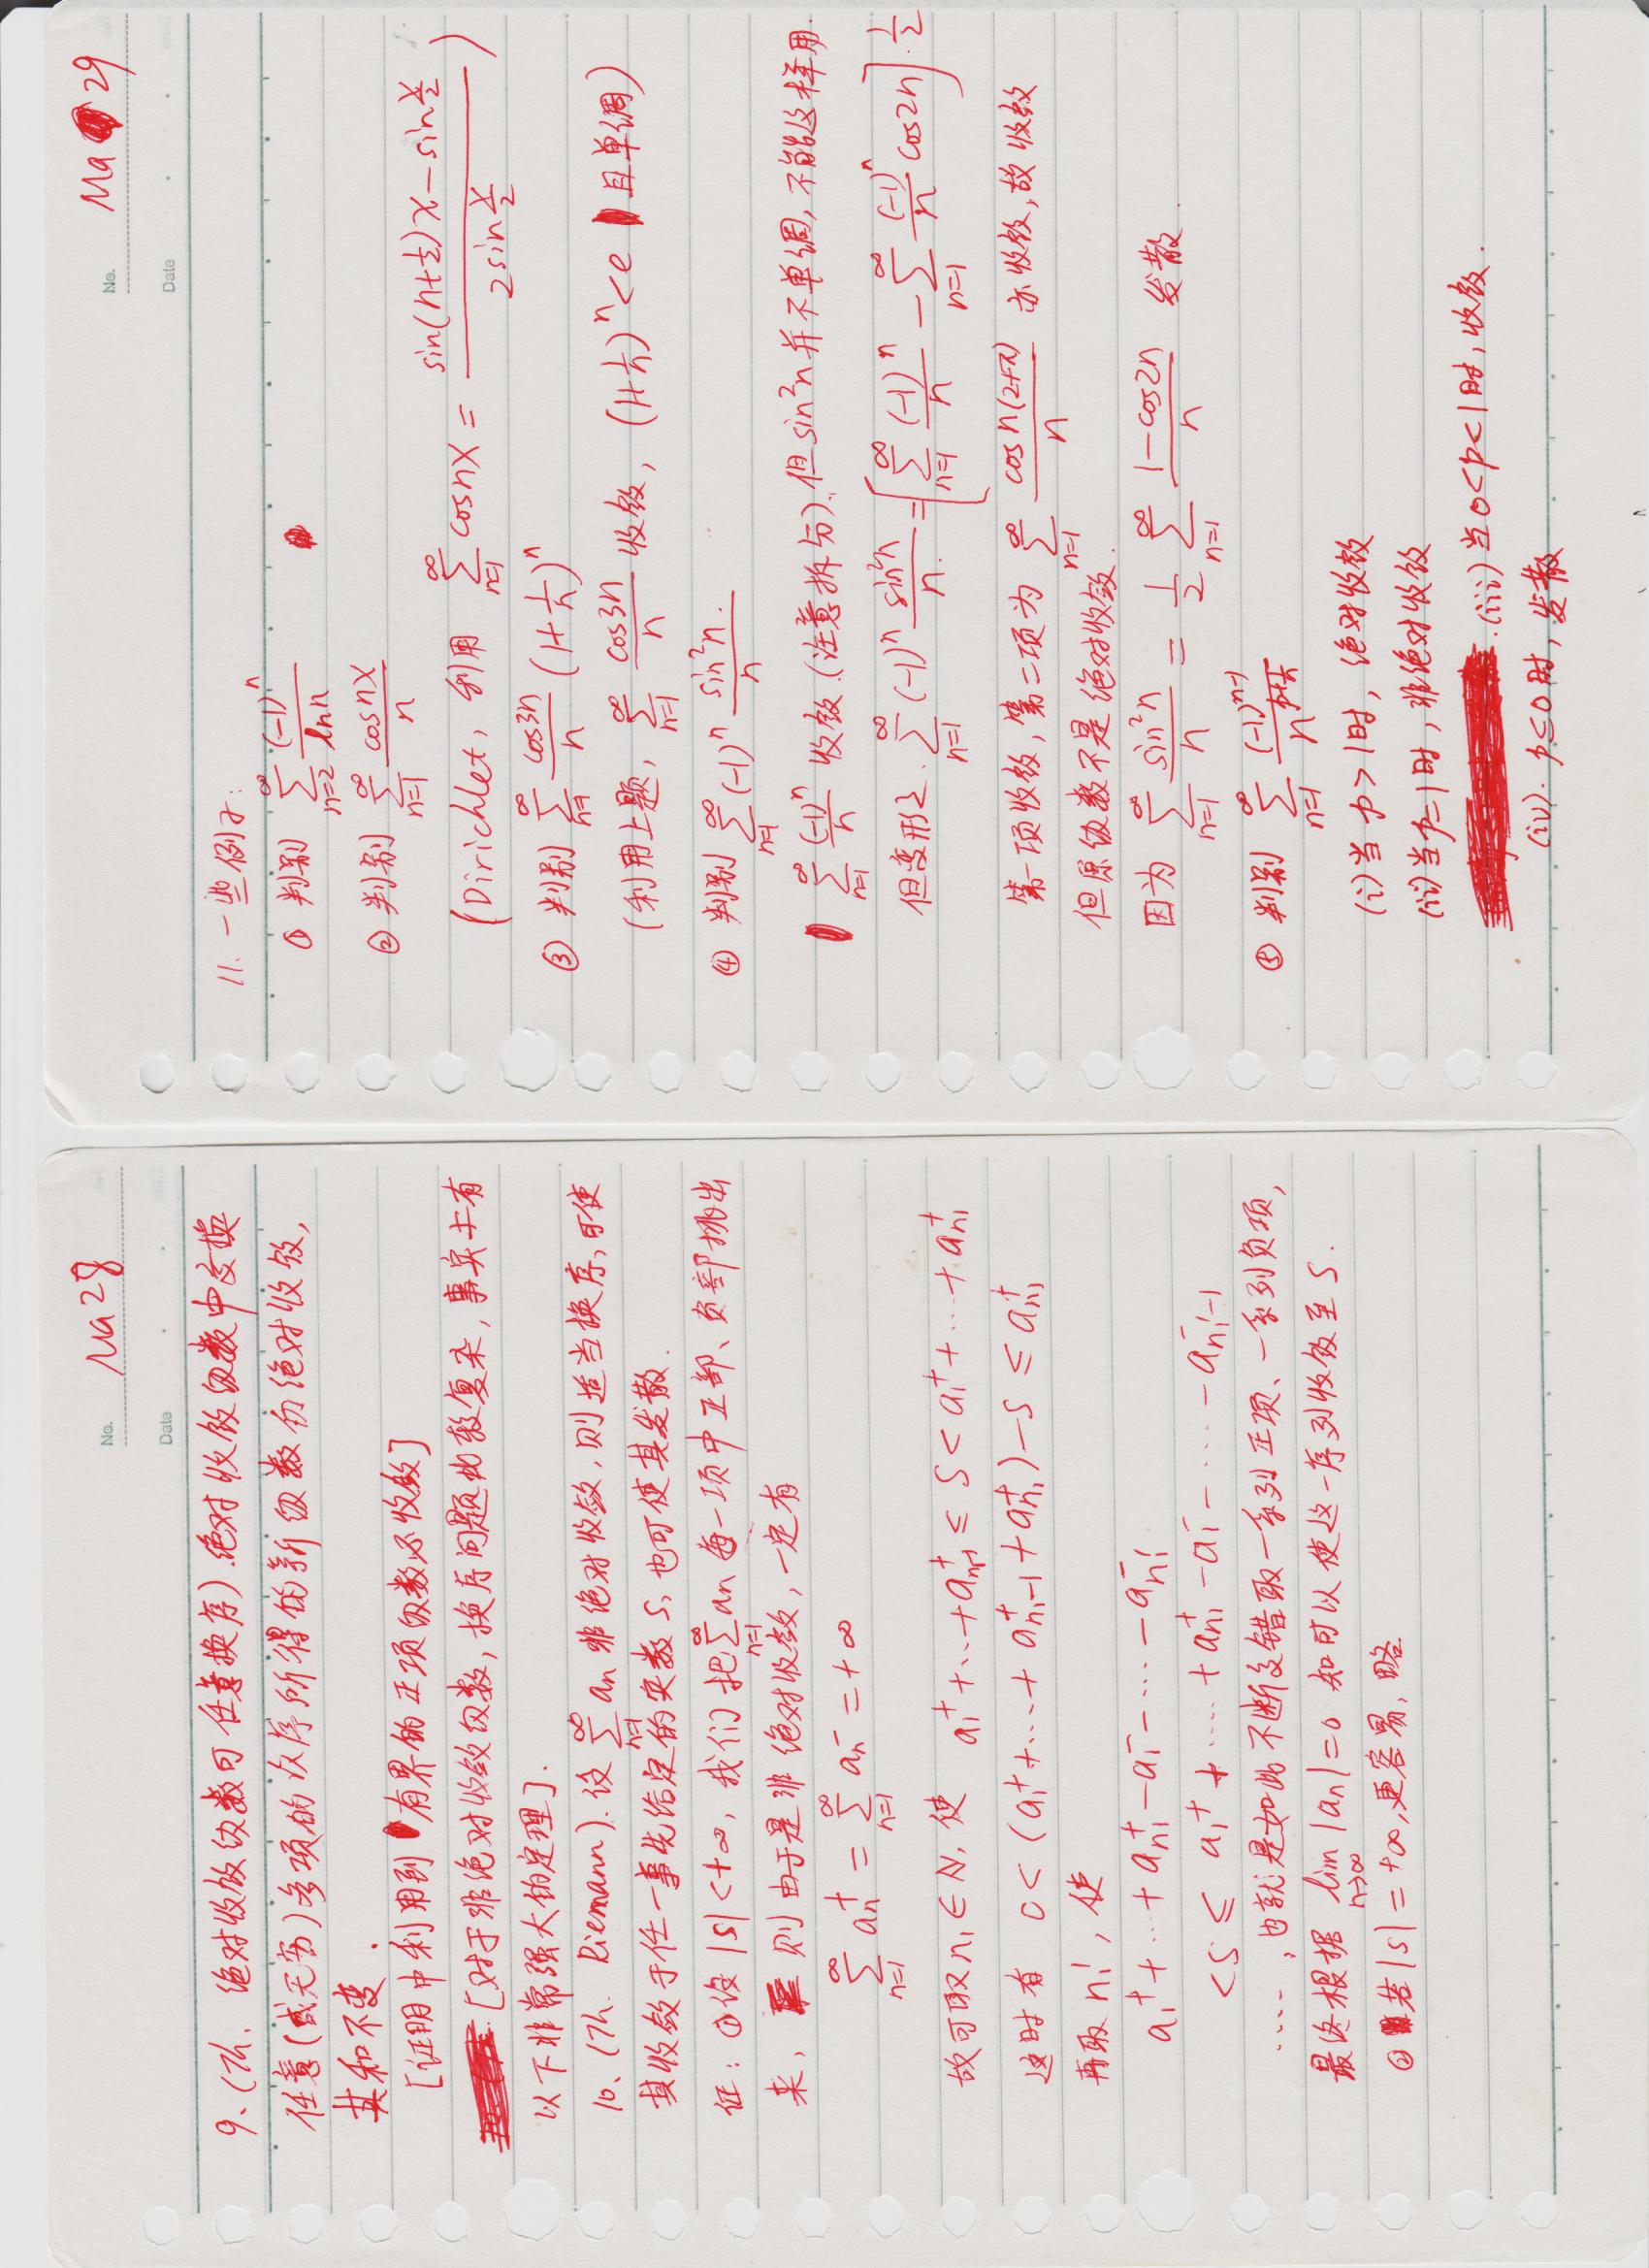 No. Ma28
Date
9、(Th. 绝对收敛级数可任意换序).绝对收敛级数中交换
任意(或无穷)多项的次序所得的新级数仍绝对收敛,
其和不变.
[证明中利用到有界的正项级数必收敛]
[对于非绝对收敛级数,换序问题比较复杂,事实上有
以下非常强大的定理].
10、(Th. Riemann).设 $\sum_{n=1}^{\infty} a_n$ 非绝对收敛,则适当换序,可使
其收敛于任一事先给定的实数S,也可使其发散.
证:①设 |S|<+∞,我们把 $\sum_{n=1}^{\infty} a_n$ 每一项中正部、负部挑出
来,则由于是非绝对收敛,一定有
$\sum_{n=1}^{\infty} a_n^+ = \sum_{n=1}^{\infty} a_n^- = +\infty$
故可取 $n_1 \in N$,使 $a_1^+ + \cdots + a_{n_1-1}^+ \leq S < a_1^+ + \cdots + a_{n_1}^+$
这时有 $0 < (a_1^+ + \cdots + a_{n_1-1}^+ + a_{n_1}^+) - S \leq a_{n_1}^+$
再取 $n_1'$,使
$a_1^+ + \cdots + a_{n_1}^+ - a_1^- - \cdots - a_{n_1'}^-$
$< S \leq a_1^+ + \cdots + a_{n_1}^+ - a_1^- - \cdots - a_{n_1'-1}^-$
……,也就是如此不断交错取一系列正项、一系列负项,
最终根据 $\lim_{n\to\infty} |a_n| = 0$ 知可以使这一序列收敛至S.
②若|S|=+∞,更容易,略
No. Ma 29
Date
11. 一些例子:
① 判别 $\sum_{n=2}^{\infty} \frac{(-1)^n}{\ln n}$
② 判别 $\sum_{n=1}^{\infty} \frac{\cos nx}{n}$
(Dirichlet,利用 $\sum_{n=1}^{\infty} \cos nx = \frac{\sin(n+\frac{1}{2})x - \sin\frac{x}{2}}{2\sin\frac{x}{2}}$)
③ 判别 $\sum_{n=1}^{\infty} \frac{\cos 3n}{n} (1+\frac{1}{n})^n$
(利用上题,$\sum_{n=1}^{\infty} \frac{\cos 3n}{n}$ 收敛,$(1+\frac{1}{n})^n < e$ 且单调)
④ 判别 $\sum_{n=1}^{\infty} (-1)^n \frac{\sin^2 n}{n}$.
$\sum_{n=1}^{\infty} \frac{(-1)^n}{n}$ 收敛(注意拆分).但 $\sin^2 n$ 并不单调,不能这样用.
但变形之. $\sum_{n=1}^{\infty} (-1)^n \frac{\sin^2 n}{n} = [\sum_{n=1}^{\infty} \frac{(-1)^n}{n} - \sum_{n=1}^{\infty} \frac{(-1)^n}{n} \cos 2n] \cdot \frac{1}{2}$
第一项收敛,第二项为 $\sum_{n=1}^{\infty} \frac{\cos n(2+\pi)}{n}$ 亦收敛,故收敛
但原级数不是绝对收敛.
因为 $\sum_{n=1}^{\infty} \frac{\sin^2 n}{n} = \frac{1}{2} \sum_{n=1}^{\infty} \frac{1-\cos 2n}{n}$ 发散.
⑤ 判别 $\sum_{n=1}^{\infty} \frac{(-1)^{n-1}}{n^{p+\frac{1}{n}}}$
(i)当 p>1时,绝对收敛
(ii)当p=1时,非绝对收敛
.(iii)当0<p<1时,收敛.
(iv). p≤0时,发散